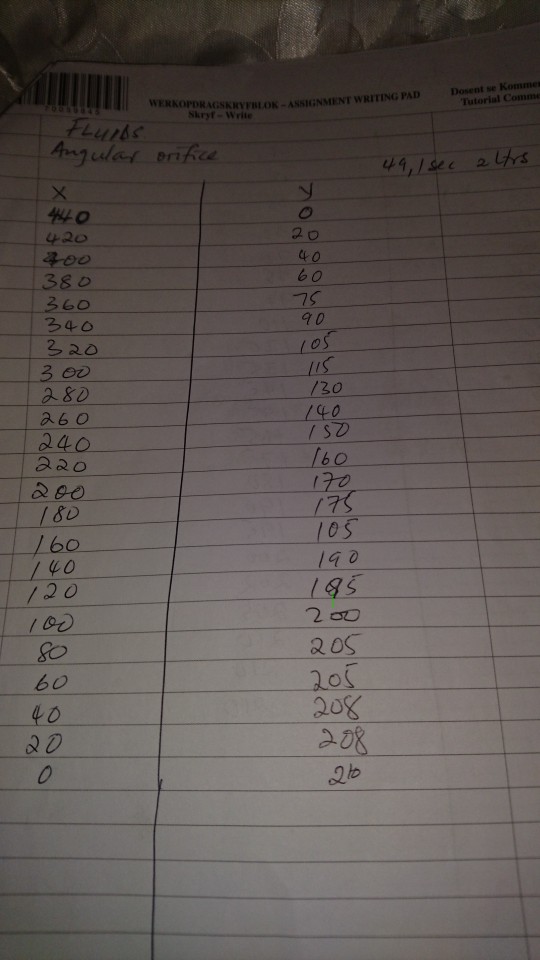 WERKOPDRAGSKRYFBLOK - ASSIGNMENT WRITING PAD
Skryf - Write
Dosent se
Tutorial
Fluids
Angular orifice
49,1sec 2 Ltrs
x y
440 0
420 20
400 40
380 60
360 75
340 90
320 105
300 115
280 130
260 140
240 150
220 160
200 170
180 175
160 105
140 190
120 195
100 200
80 205
60 205
40 208
20 208
0 210